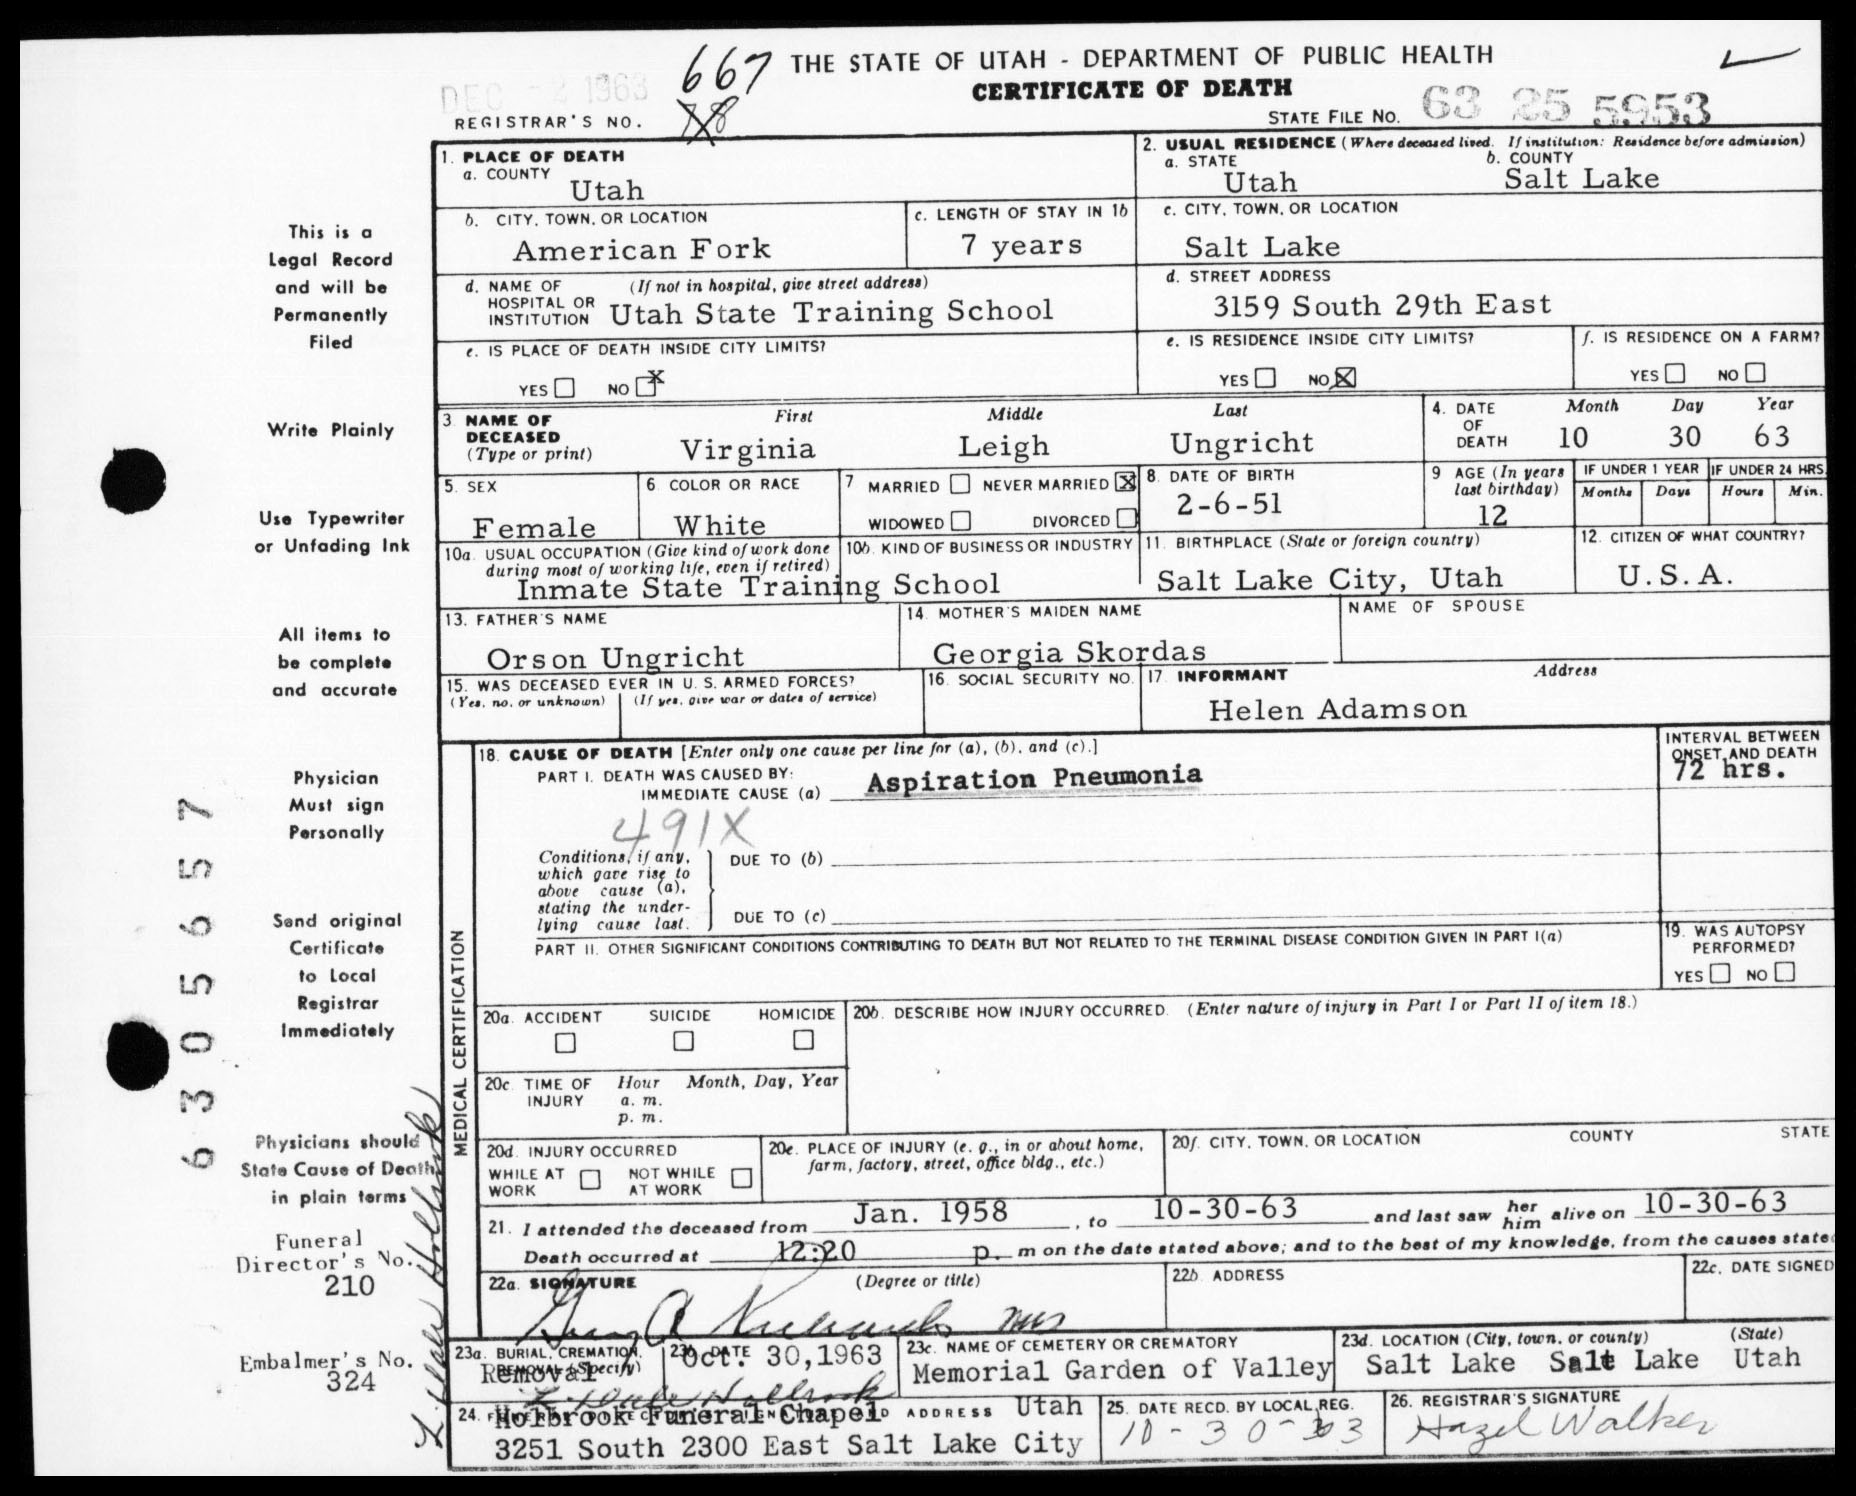 DEC - 2 1963
667
THE STATE OF UTAH - DEPARTMENT OF PUBLIC HEALTH
CERTIFICATE OF DEATH
REGISTRAR'S NO.
STATE FILE NO. 63 25 5953
1. PLACE OF DEATH
a. COUNTY
Utah
2. USUAL RESIDENCE (Where deceased lived. If institution: Residence before admission)
a. STATE b. COUNTY
Utah Salt Lake
b. CITY, TOWN, OR LOCATION
American Fork
c. LENGTH OF STAY IN 1b
7 years
c. CITY, TOWN, OR LOCATION
Salt Lake
d. NAME OF (If not in hospital, give street address)
HOSPITAL OR
INSTITUTION Utah State Training School
d. STREET ADDRESS
3159 South 29th East
e. IS PLACE OF DEATH INSIDE CITY LIMITS?
YES NO X
e. IS RESIDENCE INSIDE CITY LIMITS?
YES NO X
f. IS RESIDENCE ON A FARM?
YES NO
3 NAME OF
DECEASED
(Type or print)
First Middle Last
Virginia Leigh Ungricht
4. DATE
OF
DEATH
Month Day Year
10 30 63
5. SEX
Female
6 COLOR OR RACE
White
7 MARRIED NEVER MARRIED X
WIDOWED DIVORCED
8. DATE OF BIRTH
2-6-51
9 AGE (In years
last birthday)
12
IF UNDER 1 YEAR
Months Days
IF UNDER 24 HRS.
Hours Min.
10a. USUAL OCCUPATION (Give kind of work done
during most of working life, even if retired)
10b. KIND OF BUSINESS OR INDUSTRY
Inmate State Training School
11. BIRTHPLACE (State or foreign country)
Salt Lake City, Utah
12. CITIZEN OF WHAT COUNTRY?
U.S.A.
13. FATHER'S NAME
Orson Ungricht
14. MOTHER'S MAIDEN NAME
Georgia Skordas
NAME OF SPOUSE
15. WAS DECEASED EVER IN U. S. ARMED FORCES?
(Yes, no, or unknown) (If yes, give war or dates of service)
16. SOCIAL SECURITY NO.
17. INFORMANT Address
Helen Adamson
MEDICAL CERTIFICATION
18. CAUSE OF DEATH [Enter only one cause per line for (a), (b), and (c).]
PART I. DEATH WAS CAUSED BY:
IMMEDIATE CAUSE (a) Aspiration Pneumonia
INTERVAL BETWEEN
ONSET AND DEATH
72 hrs.
491X
Conditions, if any,
which gave rise to
above cause (a),
stating the under-
lying cause last.
DUE TO (b)
DUE TO (c)
PART II. OTHER SIGNIFICANT CONDITIONS CONTRIBUTING TO DEATH BUT NOT RELATED TO THE TERMINAL DISEASE CONDITION GIVEN IN PART I(a)
19. WAS AUTOPSY
PERFORMED?
YES NO
20a. ACCIDENT SUICIDE HOMICIDE
20b. DESCRIBE HOW INJURY OCCURRED. (Enter nature of injury in Part I or Part II of item 18.)
20c. TIME OF
INJURY
Hour Month, Day, Year
a. m.
p. m.
20d. INJURY OCCURRED
WHILE AT
WORK
NOT WHILE
AT WORK
20e. PLACE OF INJURY (e. g., in or about home,
farm, factory, street, office bldg., etc.)
20f. CITY, TOWN, OR LOCATION COUNTY STATE
21. I attended the deceased from Jan. 1958, to 10-30-63 and last saw her him alive on 10-30-63
Death occurred at 12:20 p. m on the date stated above; and to the best of my knowledge, from the causes state
22a. SIGNATURE (Degree or title)
22b. ADDRESS
22c. DATE SIGNED
23a. BURIAL, CREMATION,
REMOVAL (Specify)
Removal
23b. DATE
Oct. 30,1963
23c. NAME OF CEMETERY OR CREMATORY
Memorial Garden of Valley
23d. LOCATION (City, town, or county) (State)
Salt Lake Salt Lake Utah
L. Dale Holbrook
24. ADDRESS
Holbrook Funeral Chapel Utah
3251 South 2300 East Salt Lake City
25. DATE RECD. BY LOCAL REG.
10-30-63
26. REGISTRAR'S SIGNATURE
Hazel Walker
This is a
Legal Record
and will be
Permanently
Filed
Write Plainly
Use Typewriter
or Unfading Ink
All items to
be complete
and accurate
Physician
Must sign
Personally
Send original
Certificate
to Local
Registrar
Immediately
Physicians should
State Cause of Death
in plain terms
Funeral
Director's No.
210
Embalmer's No.
324
L. Dale Holbrook
6305657